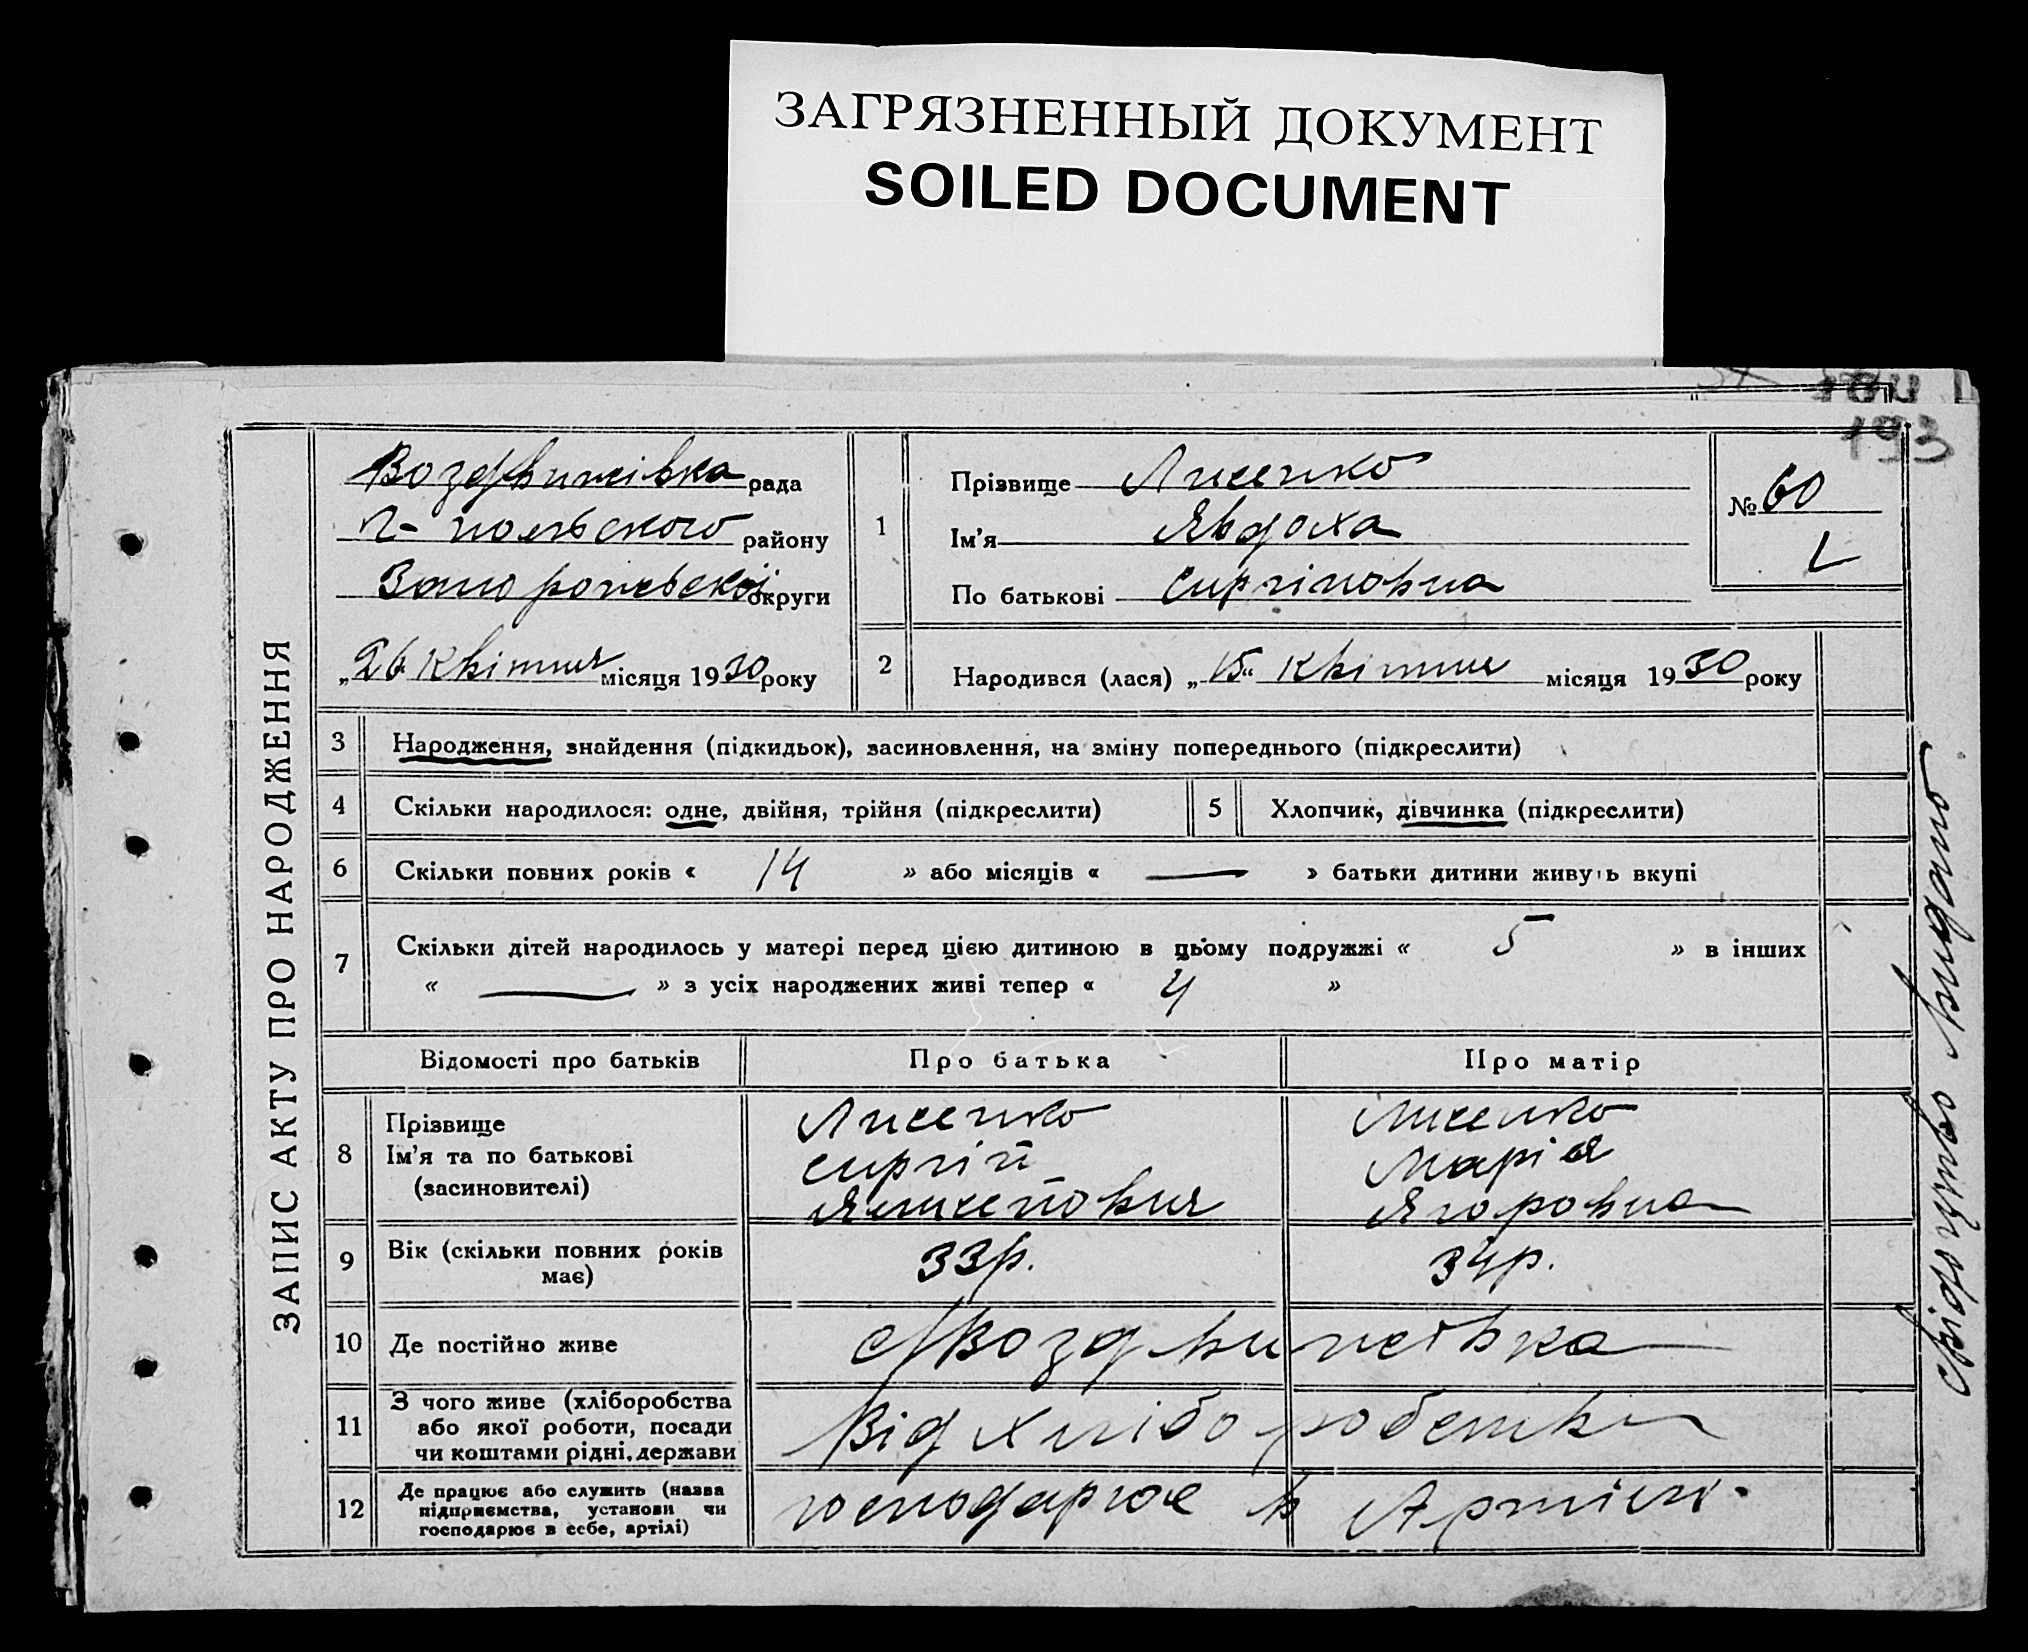 ЗАГРЯЗНЕННЫЙ ДОКУМЕНТ
SOILED DOCUMENT
193
ЗАПИС АКТУ ПРО НАРОДЖЕННЯ
Воздвижівка рада
Г-польского району
Запорожської округи
„26 Квітня місяця 1930 року
1
Прізвище Лисенко
Ім'я Явдоха
По батькові Сиргіювна
№ 60
2 Народився (лася) „15“ Квітня місяця 1930 року
3 Народження, знайдення (підкидьок), засиновлення, на зміну попереднього (підкреслити)
4 Скільки народилося: одне, двійня, трійня (підкреслити) 5 Хлопчик, дівчинка (підкреслити)
6 Скільки повних років « 14 » або місяців « — » батьки дитини живуть вкупі
7 Скільки дітей народилось у матері перед цією дитиною в цьому подружжі « 5 » в інших
« — » з усіх народжених живі тепер « 4 »
Відомості про батьків Про батька Про матір
8 Прізвище Лисенко Лисенко
Ім'я та по батькові Сиргій Марія
(засиновителі) Ягоровна
9 Вік (скільки повних років має) 33р. 34р.
10 Де постійно живе с Воздвижевка
11 З чого живе (хліборобства
або якої роботи, посади
чи коштами рідні, держави Від хліборобства
12 Де працює або служить (назва
підприємства, установи чи
господарює в себе, артілі) господарює в Артілі.
свідоцтво видано